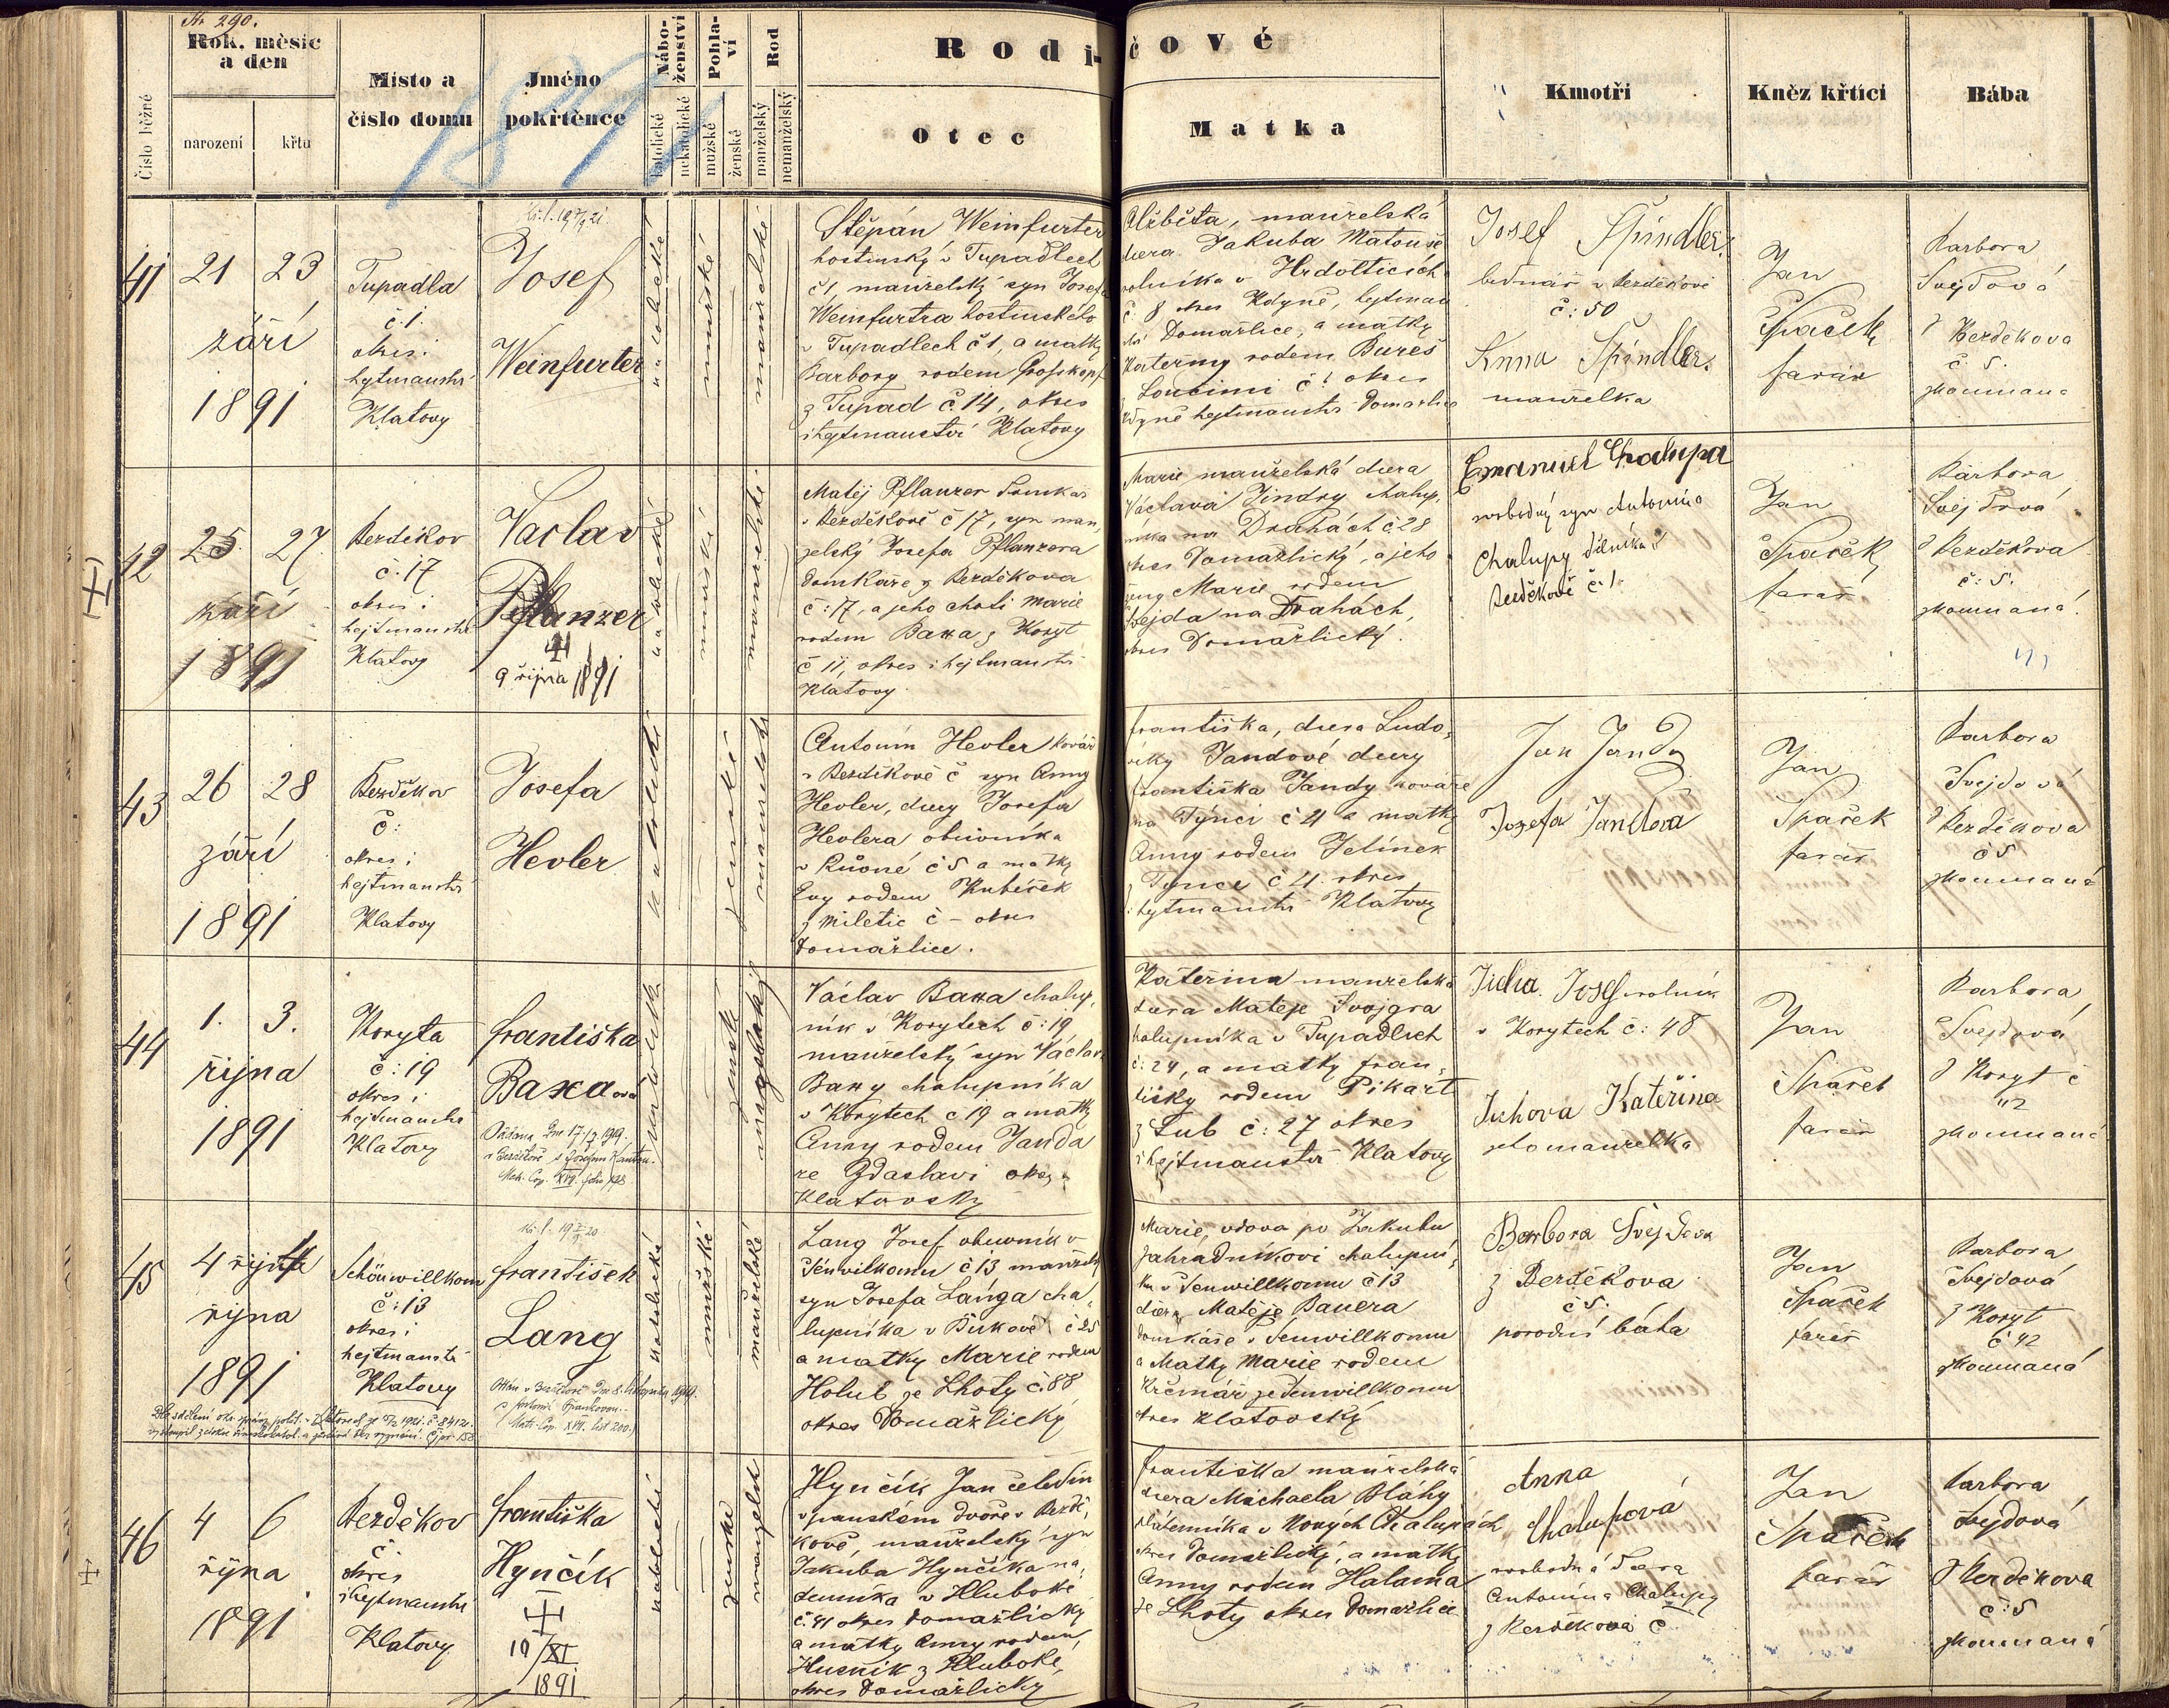 Str. 290.
Rok, měsíc
a den
Číslo běžné
narození
křtu
Místo a
číslo domu
Jméno
pokřtěnce
1891
Nábo-
ženství
katolické
nekatolické
Pohla-
ví
mužské
ženské
Rod
manželský
nemanželský
Rodi-
čové
Otec
Matka
Kmotři
Kněz křtící
Bába
41
21 23
září
1891
Tupadla
č. 1.
okres i
hejtmanství
Klatovy
Josef
Weinfurter
katolické
mužské
manželské
Štěpán Weinfurter
hostinský v Tupadlech
č 1, manželský syn Josefa
Weinfurtra hostinského
v Tupadlech č 1, a matky
Barbory rodem
z Tupad č 14, okres
i hejtmanství Klatovy
Alžběta, manželská
dcera Jakuba Matouše
rolníka v Hrdolticích
č. 8 okres Kdyně, hejtman
ství Domažlice, a matky
Kateřiny rodem Bureš
z Loučimi č. okres
Kdyně hejtmanství Domažlice
Josef Špindler
bednář v Bezděkově
č: 50
Anna Špindler
manželka
Jan
Špaček
farář
Barbora
Švejdová
z Bezděkova
č. 5.
zkoumaná
42
25. 27
září
1891
Bezděkov
č. 17
okres i
hejtmanství
Klatovy
Vaclav
Pflanzer
9 října 1891
katolické
mužské
manželské
Matěj Pflanzer domkář
v Bezděkově č 17, syn man
želský Josefa Pflanzera
domkáře z Bezděkova
č: 17, a jeho choti Marie
rodem Baxa z Koryt
č 11, okres i hejtmanství
Klatovy.
Marie manželská dcera
Václava Jindry chalup.
níka na Drahách č. 28
okres Domažlický, a jeho
ženy Marie rodem
Švejda na Drahách,
okres Domažlický.
Emanuel Chalupa
svobodný syn Antonína
Chalupy dělníka
Bezděkově č. 1.
Jan
Špaček
farář
Barbora
Švejdová
z Bezděkova
č: 5.
zkoumaná.
43
26 28
září
1891
Bezděkov
č:
okres i
hejtmanství
Klatovy
Josefa
Hevler
katolické
ženské
manželské
Antonín Hevler kovář
v Bezděkově č syn Anny
Hevler, dcery Josefa
Hevlera obuvníka
v č 5 a matky
Evy rodem Kubíček
z Miletic č – okres
Domažlice.
Františka, dcera Ludo-
viky Jandové dcery
Františka Jandy kováře
na Týnci č 21 a matky
Anny rodem Jelínek
z Týnce č 21. okres
i hejtmanství Klatovy
Jan Janda
Jozefa Jandová
Jan
Špaček
farář
Barbora
Švejdová
z Bezděkova
č 5
zkoumaná
44
1. 3.
října
1891
Koryta
č: 19
okres i
hejtmanství
Klatovy
Františka
Baxa ová
Oddána dne 17/2. 1919.
v Bezděkově s Josefem
Matr. Cop. XVII. folio 198
katolické
ženské
manželský
Václav Baxa chalup.
ník v Korytech č: 19
manželský syn Václava
Baxy chalupníka
v Korytech č 19 a matky
Anny rodem Janda
ze Zdaslavi okres
Klatovský
Kateřina manželská
dcera Matěje Svojgra
chalupníka v Tupadlech
č: 24, a matky Fran-
tišky rodem Pikart
z Lub č: 27 okres
i hejtmanství Klatovy
Jícha Josef rolník
v Korytech č: 48
Jíchova Kateřina
jeho manželka
Jan
Špaček
farář
Barbora
Švejdová
z Koryt č
42
zkoumaná
45
4
října
1891
Schönwillkom
č: 13
okres i
hejtmanství
Klatovy
František
Lang
katolické
mužské
manželské
Lang Josef obuvník v
Šenvilkomu č 13 manžels.
syn Josefa Langa cha-
lupníka v č 25
a matky Marie rodem
Holub ze Lhoty č. 88
okres Domažlický
Marie, vdova po Jakubu
Zahradníkovi chalupní-
ku v Šenwillkomu č 13
dcera Matěje Bauera
domkáře v Šenwillkomu
a Matky Marie rodem
Krčmář ze Šenwillkomu
okres Klatovský
Barbora Švejdova
z Bezděkova
č 5.
porodní bába
Jan
Špaček
farář
Barbora
Švejdová
z Koryt
č 42
zkoumaná
46
4 6
října
1891
Bezděkov
č
okres
i hejtmanství
Klatovy
Františka
Hynčík
10/XI
1891
katolické
ženské
manželské
Hynčík Jan čeledín
v panském dvoře v Bezdě-
kově, manželský syn
Jakuba Hynčíka ná-
deníka v Hluboké
č. 41 okres Domažlický
a matky Anny rodem
Husník z Hluboké,
okres Domažlický
Františka manželská
dcera Michaela Bláhy
v Nových Chalupách
okres Domažlický, a matky
Anny rodem Halama
ze Lhoty okres Domažlice
Anna
Chalupová
svobodná dcera
Antonína Chalupy
z Bezděkova č
Jan
Špaček
farář
Barbora
Švejdová
z Bezděkova
č: 5
zkoumaná